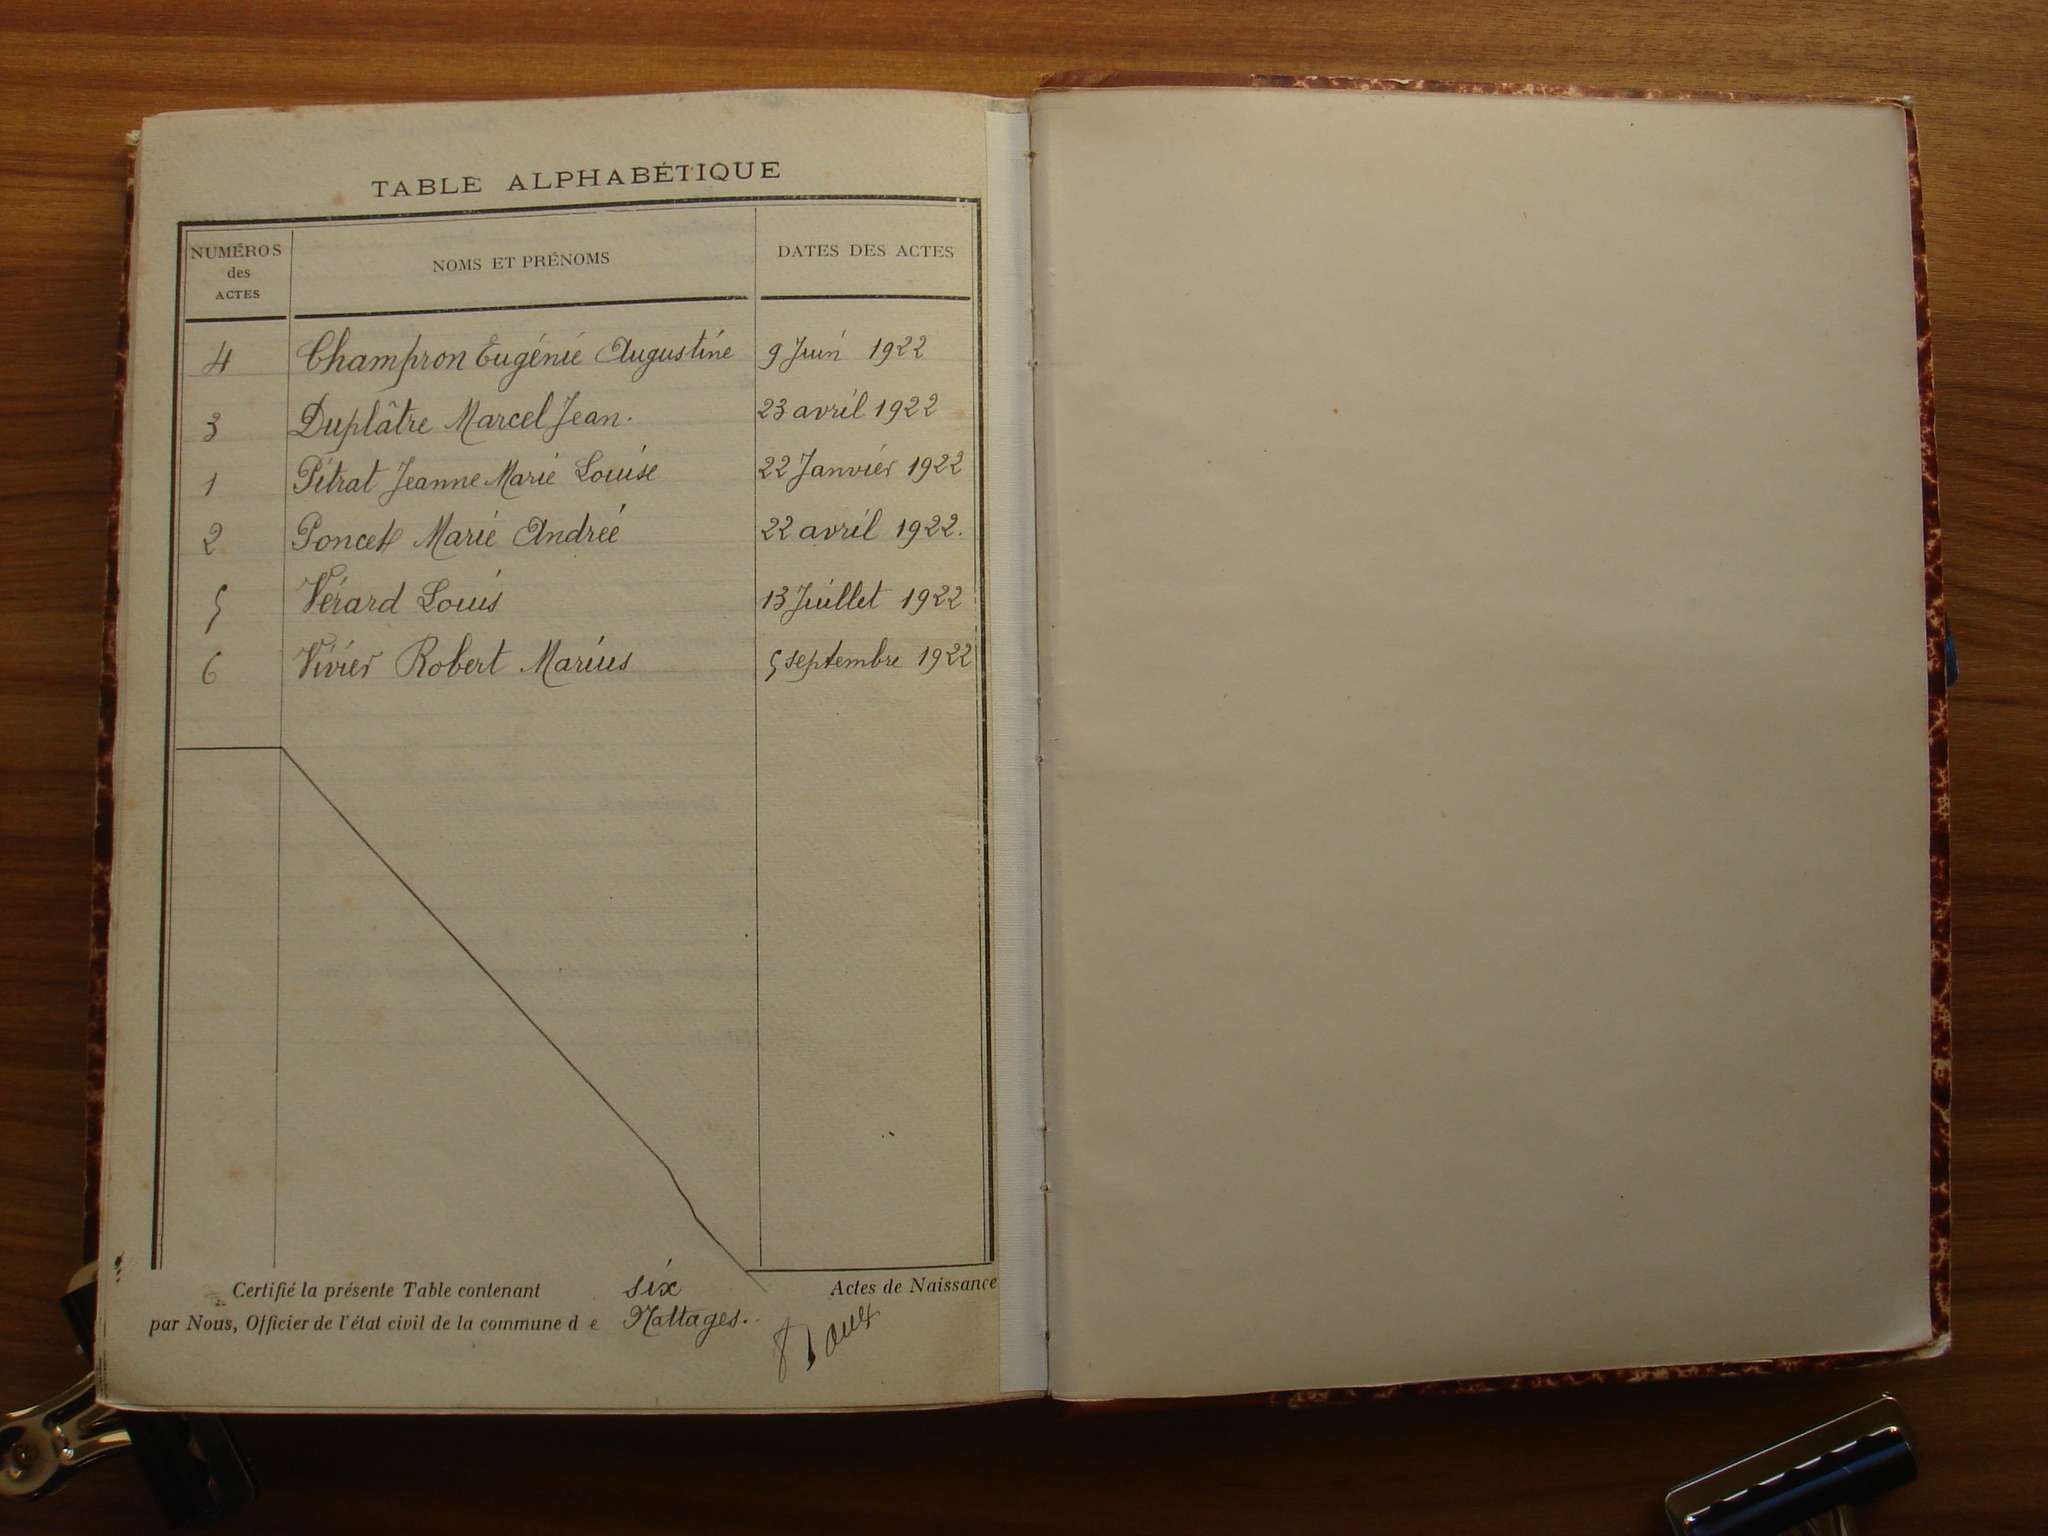 TABLE ALPHABÉTIQUE
NUMÉROS des ACTES NOMS ET PRÉNOMS DATES DES ACTES
4 Champron Eugénie Augustine 9 Juin 1922
3 Duplâtre Marcel Jean. 23 avril 1922
1 Pitrat Jeanne Marie Louise 22 Janvier 1922
2 Poncet Marie Andrée 22 avril 1922.
5 Vérard Louis 13 Juillet 1922
6 Vivier Robert Marius 5 septembre 1922
Certifié la présente Table contenant six Actes de Naissance
par Nous, Officier de l'état civil de la commune de Nattages.